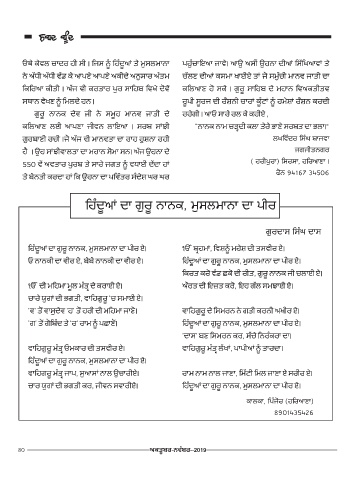 ਸ਼ਬਦ ਬੂੰਦ
ਓਥੇ ਕੇਵਲ ਚਾਦਰ ਹੀ ਸੀ। ਜਿਸ ਨੂੰ ਹਿੰਦੂਆਂ ਤੇ ਮੁਸਲਮਾਨਾ
ਨੇ ਅੱਧੀ ਅੱਧੀ ਵੰਡ ਕੇ ਆਪਣੇ ਆਪਣੇ ਅਕੀਦੇ ਅਨੁਸਾਰ ਅੰਤਮ
ਕਿਰਿਆ ਕੀਤੀ। ਅੱਜ ਵੀ ਕਰਤਾਰ ਪੁਰ ਸਾਹਿਬ ਵਿਖੇ ਦੋਵੇਂ
ਸਥਾਨ ਵੇਖਣ ਨੂੰ ਮਿਲਦੇ ਹਨ।
ਗੁਰੂ ਨਾਨਕ ਦੇਵ ਜੀ ਨੇ ਸਮੂਹ ਮਾਨਵ ਜਾਤੀ ਦੇ
ਕਲਿਆਣ ਲਈ ਆਪਣਾ ਜੀਵਨ ਲਾਇਆ। ਸਰਬ ਸਾਂਝੀ
ਗੁਰਬਾਣੀ ਰਚੀ।ਜੋ ਅੱਜ ਵੀ ਮਾਨਵਤਾ ਦਾ ਰਾਹ ਰੁਸ਼ਨਾ ਰਹੀ
ਹੈ । ਉਹ ਸਾਂਝੀਵਾਲਤਾ ਦਾ ਮਹਾਨ ਸੋਮਾ ਸਨ। ਅੱਜ ਉਹਨਾ ਦੇ
550 ਵੇਂ ਅਵਤਾਰ ਪੁਰਬ ਤੇ ਸਾਰੇ ਜਗਤ ਨੂੰ ਵਧਾਈ ਦੇਂਦਾ ਹਾਂ
ਤੇ ਬੇਨਤੀ ਕਰਦਾ ਹਾਂ ਕਿ ਉਹਨਾ ਦਾ ਪਵਿੱਤਰ ਸੰਦੇਸ਼ ਘਰ ਘਰ
ਪਹੁੰਚਾਇਆ ਜਾਵੇ। ਆਉ ਅਸੀਂ ਉਹਨਾ ਦੀਆਂ ਸਿੱਖਿਆਵਾਂ ਤੇ
ਚੱਲਣ ਦੀਆਂ ਕਸਮਾਂ ਖਾਈਏ ਤਾਂ ਜੋ ਸਮੁੱਚੀ ਮਾਨਵ ਜਾਤੀ ਦਾ
ਕਲਿਆਣ ਹੋ ਸਕੇ । ਗੁਰੂ ਸਾਹਿਬ ਦੇ ਮਹਾਨ ਵਿਅਕਤੀਤਵ
ਰੂਪੀ ਸੂਰਜ ਦੀ ਰੌਸ਼ਨੀ ਚਾਰਾਂ ਕੂੰਟਾਂ ਨੂੰ ਹਮੇਸ਼ਾਂ ਰੌਸ਼ਨ ਕਰਦੀ
ਰਹੇਗੀ। ਆਓ ਸਾਰੇ ਰਲ ਕੇ ਕਹੀਏ ,
"ਨਾਨਕ ਨਾਮ ਚੜ੍ਹਦੀ ਕਲਾ ਤੇਰੇ ਭਾਣੇ ਸਰਬਤ ਦਾ ਭਲਾ।"
ਲਖਵਿੰਦਰ ਸਿੰਘ ਬਾਜਵਾ
ਜਗਜੀਤਨਗਰ
( ਹਰੀਪੁਰਾ) ਸਿਰਸਾ, ਹਰਿਆਣਾ ।
ਫੋਨ 94167 34506
ਹਿੰਦੂਆਂ ਦਾ ਗੁਰੂ ਨਾਨਕ, ਮੁਸਲਮਾਨਾ ਦਾ ਪੀਰ
ਗੁਰਦਾਸ ਸਿੰਘ ਦਾਸ
ਹਿੰਦੂਆਂ ਦਾ ਗੁਰੂ ਨਾਨਕ, ਮੁਸਲਮਾਨਾ ਦਾ ਪੀਰ ਏ।
ਓ ਨਾਨਕੀ ਦਾ ਵੀਰ ਏ, ਬੇਬੇ ਨਾਨਕੀ ਦਾ ਵੀਰ ਏ।
ੴ ਦੀ ਮਹਿਮਾ ਮੂਲ ਮੰਤ੍ਰ ਦੇ ਕਰਾਈ ਏ।
ਚਾਰੇ ਯੁਗਾਂ ਦੀ ਭਗਤੀ, ਵਾਹਿਗੁਰੂ 'ਚ ਸਮਾਈ ਏ।
'ਵ' ਤੋਂ ਵਾਸੂਦੇਵ 'ਹ' ਤੋਂ ਹਰੀ ਦੀ ਮਹਿਮਾ ਜਾਣੋ।
'ਗ' ਤੋਂ ਗੋਬਿੰਦ ਤੇ 'ਰ' ਰਾਮ ਨੂੰ ਪਛਾਣੋ।
ਵਾਹਿਗੁਰੂ ਮੰਤ੍ਰ ਓਅਕਾਰ ਦੀ ਤਸਵੀਰ ਏ।
ਹਿੰਦੂਆਂ ਦਾ ਗੁਰੂ ਨਾਨਕ, ਮੁਸਲਮਾਨਾ ਦਾ ਪੀਰ ਏ।
ਵਾਹਿਗੁਰੂ ਮੰਤ੍ਰ ਜਾਪ, ਸੁਆਸਾਂ ਨਾਲ ਉਚਾਰੀਏ।
ਚਾਰ ਯੁਗਾਂ ਦੀ ਭਗਤੀ ਕਰ, ਜੀਵਨ ਸਵਾਰੀਏ।
ੴ ਬ੍ਰਹਮਾ, ਵਿਸ਼ਨੂੰ ਮਹੇਸ਼ ਦੀ ਤਸਵੀਰ ਏ।
ਹਿੰਦੂਆਂ ਦਾ ਗੁਰੂ ਨਾਨਕ, ਮੁਸਲਮਾਨਾ ਦਾ ਪੀਰ ਏ।
ਕਿਰਤ ਕਰੋ ਵੰਡ ਛਕੋ ਦੀ ਰੀਤ, ਗੁਰੂ ਨਾਨਕ ਜੀ ਚਲਾਈ ਏ।
ਔਰਤ ਦੀ ਇਜ਼ਤ ਕਰੋ, ਇਹ ਗੱਲ ਸਮਝਾਈ ਏ।
ਵਾਹਿਗੁਰੂ ਦੇ ਸਿਮਰਨ ਨੇ ਗਤੀ ਕਰਨੀ ਅਖੀਰ ਏ।
ਹਿੰਦੂਆਂ ਦਾ ਗੁਰੂ ਨਾਨਕ, ਮੁਸਲਮਾਨਾ ਦਾ ਪੀਰ ਏ।
'ਦਾਸ' ਬਣ ਸਿਮਰਨ ਕਰ, ਸੱਚੇ ਨਿਰੰਕਾਰ ਦਾ।
ਵਾਹਿਗੁਰੂ ਮੰਤ੍ਰ ਲੱਖਾਂ, ਪਾਪੀਆਂ ਨੂੰ ਤਾਰਦਾ।
ਰਾਮ ਨਾਮ ਨਾਲ ਜਾਣਾ, ਮਿੱਟੀ ਮਿਲ ਜਾਣਾ ਏ ਸਰੀਰ ਏ।
ਹਿੰਦੂਆਂ ਦਾ ਗੁਰੂ ਨਾਨਕ, ਮੁਸਲਮਾਨਾ ਦਾ ਪੀਰ ਏ।
ਕਾਲਕਾ, ਪਿੰਜੋਰ (ਹਰਿਆਣਾ)
8901435426
80
ਅਕਤੂਬਰ-ਨਵੰਬਰ-2019